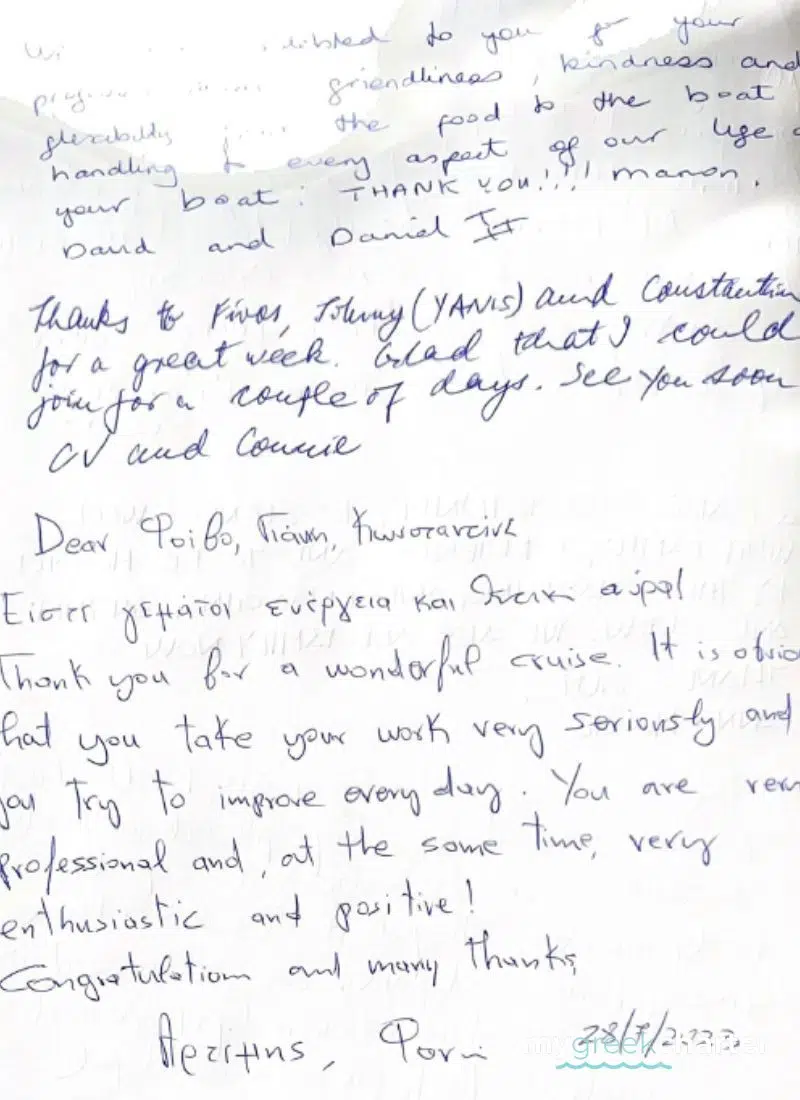 to you for your
friendliness, kindness and
flexibility the food to the boat
handling & every aspect of our life
your boat! THANK YOU!!! Manon,
David and Daniel II
Thanks to Fivos, Johnny (YANIS) and Constantin
for a great week. Glad that I could
join for a couple of days. See you soon
CV and Connie
Dear Φοίβο, Γιάννη, Κωνσταντίνε
Είστε γεμάτοι ενέργεια και θετική αύρα!
Thank you for a wonderful cruise. It is obvio
hat you take your work very seriously and
you try to improve every day. You are very
professional and, at the same time, very
enthusiastic and positive!
Congratulation and many thanks,
Άρτεμης,
mygreekcharter